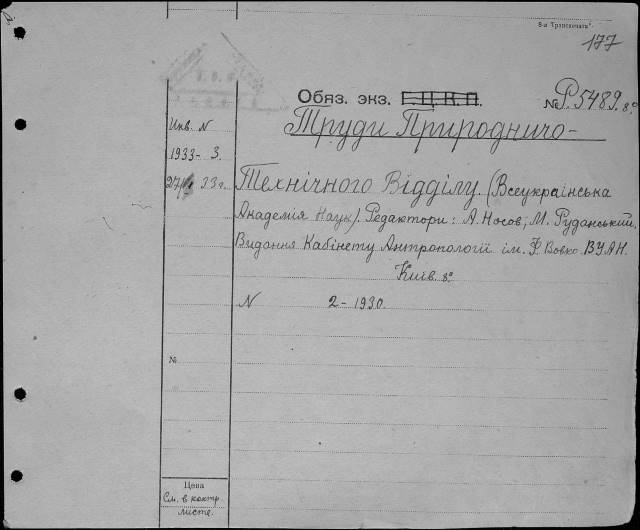 8-я Транспечать".
177
Обяз. экз. Г.Ц.К.П. № Р.5489.8°
Труди Природничо-
Инв. N
1933- 3.
27/ 33 г.
Технічного Відділу. (Всеукраїнська
Академія Наук). Редактори: А. Носов, М. Руданський.
Видання Кабінету Антропології ім. Ф. Вовка ВУАН.
Київ. 8°.
N 2-1930.
№
Цена
См. в контр.
листе.